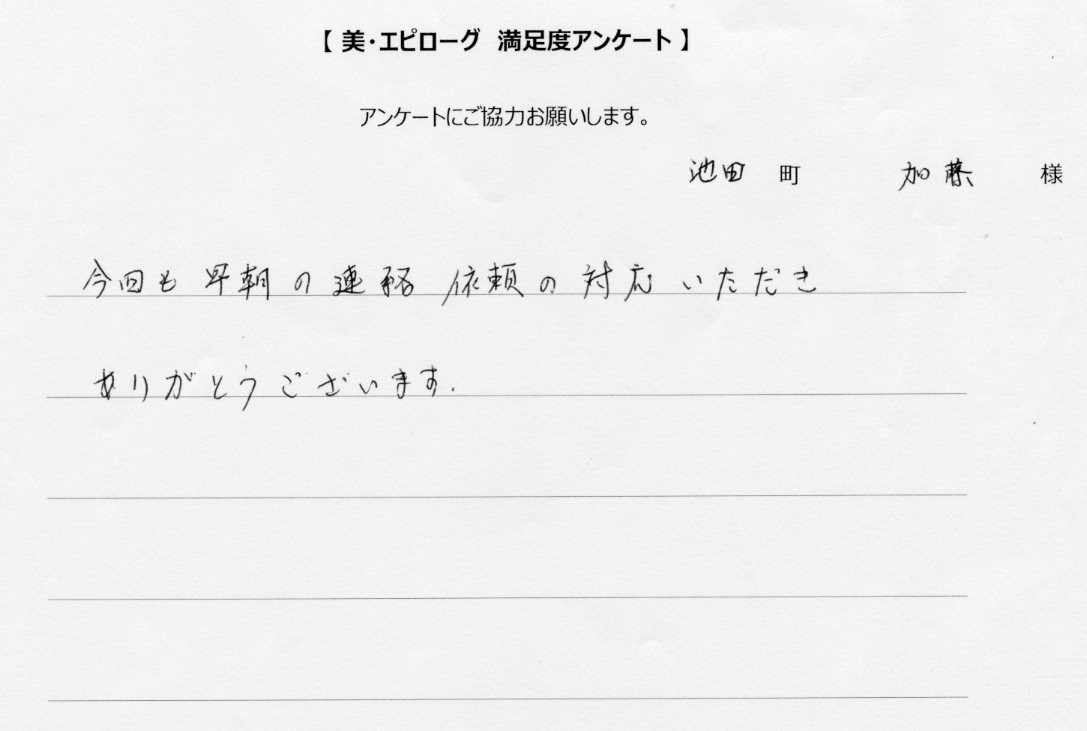 【 美・エピローグ 満足度アンケート 】
アンケートにご協力お願いします。
池田 町 加藤 様
今回も早朝の連絡 依頼の対応いただき
ありがとうございます.